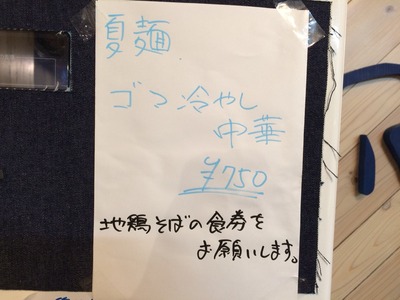 夏麺
ゴマ冷やし
中華
¥750
地鶏そばの食券を
お願いします。